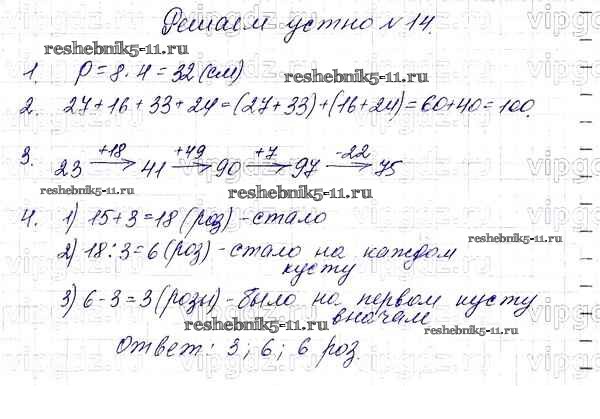 Решаем устно № 14.
reshebnik5-11.ru
1. P = 8 · 4 = 32 (см)
2. 27 + 16 + 33 + 24 = (27 + 33) + (16 + 24) = 60 + 40 = 100.
reshebnik5-11.ru
+18 +49 +7 -22
3. 23 → 41 → 90 → 97 → 75
reshebnik5-11.ru
reshebnik5-11.ru
4. 1) 15 + 3 = 18 (роз) - стало
reshebnik5-11.ru
2) 18 : 3 = 6 (роз) - стало на каждом
кусту
3) 6 - 3 = 3 (розы) - было на первом кусту
вначале
reshebnik5-11.ru
reshebnik5-11.ru
Ответ: 3; 6; 6 роз.